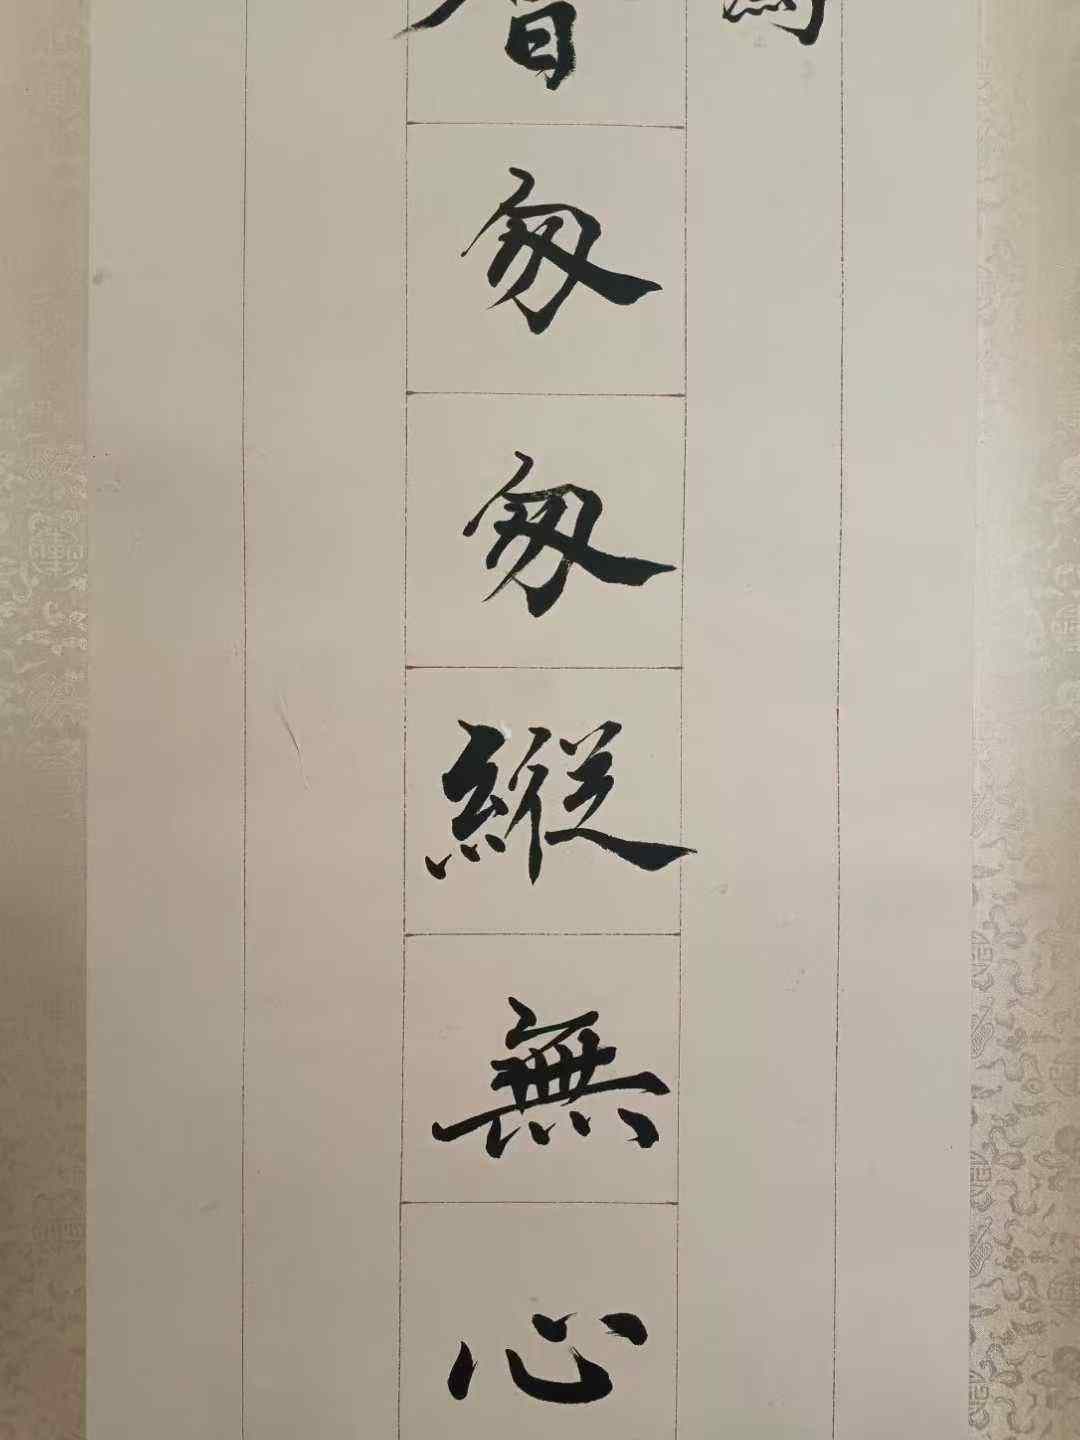 匆匆縱無心